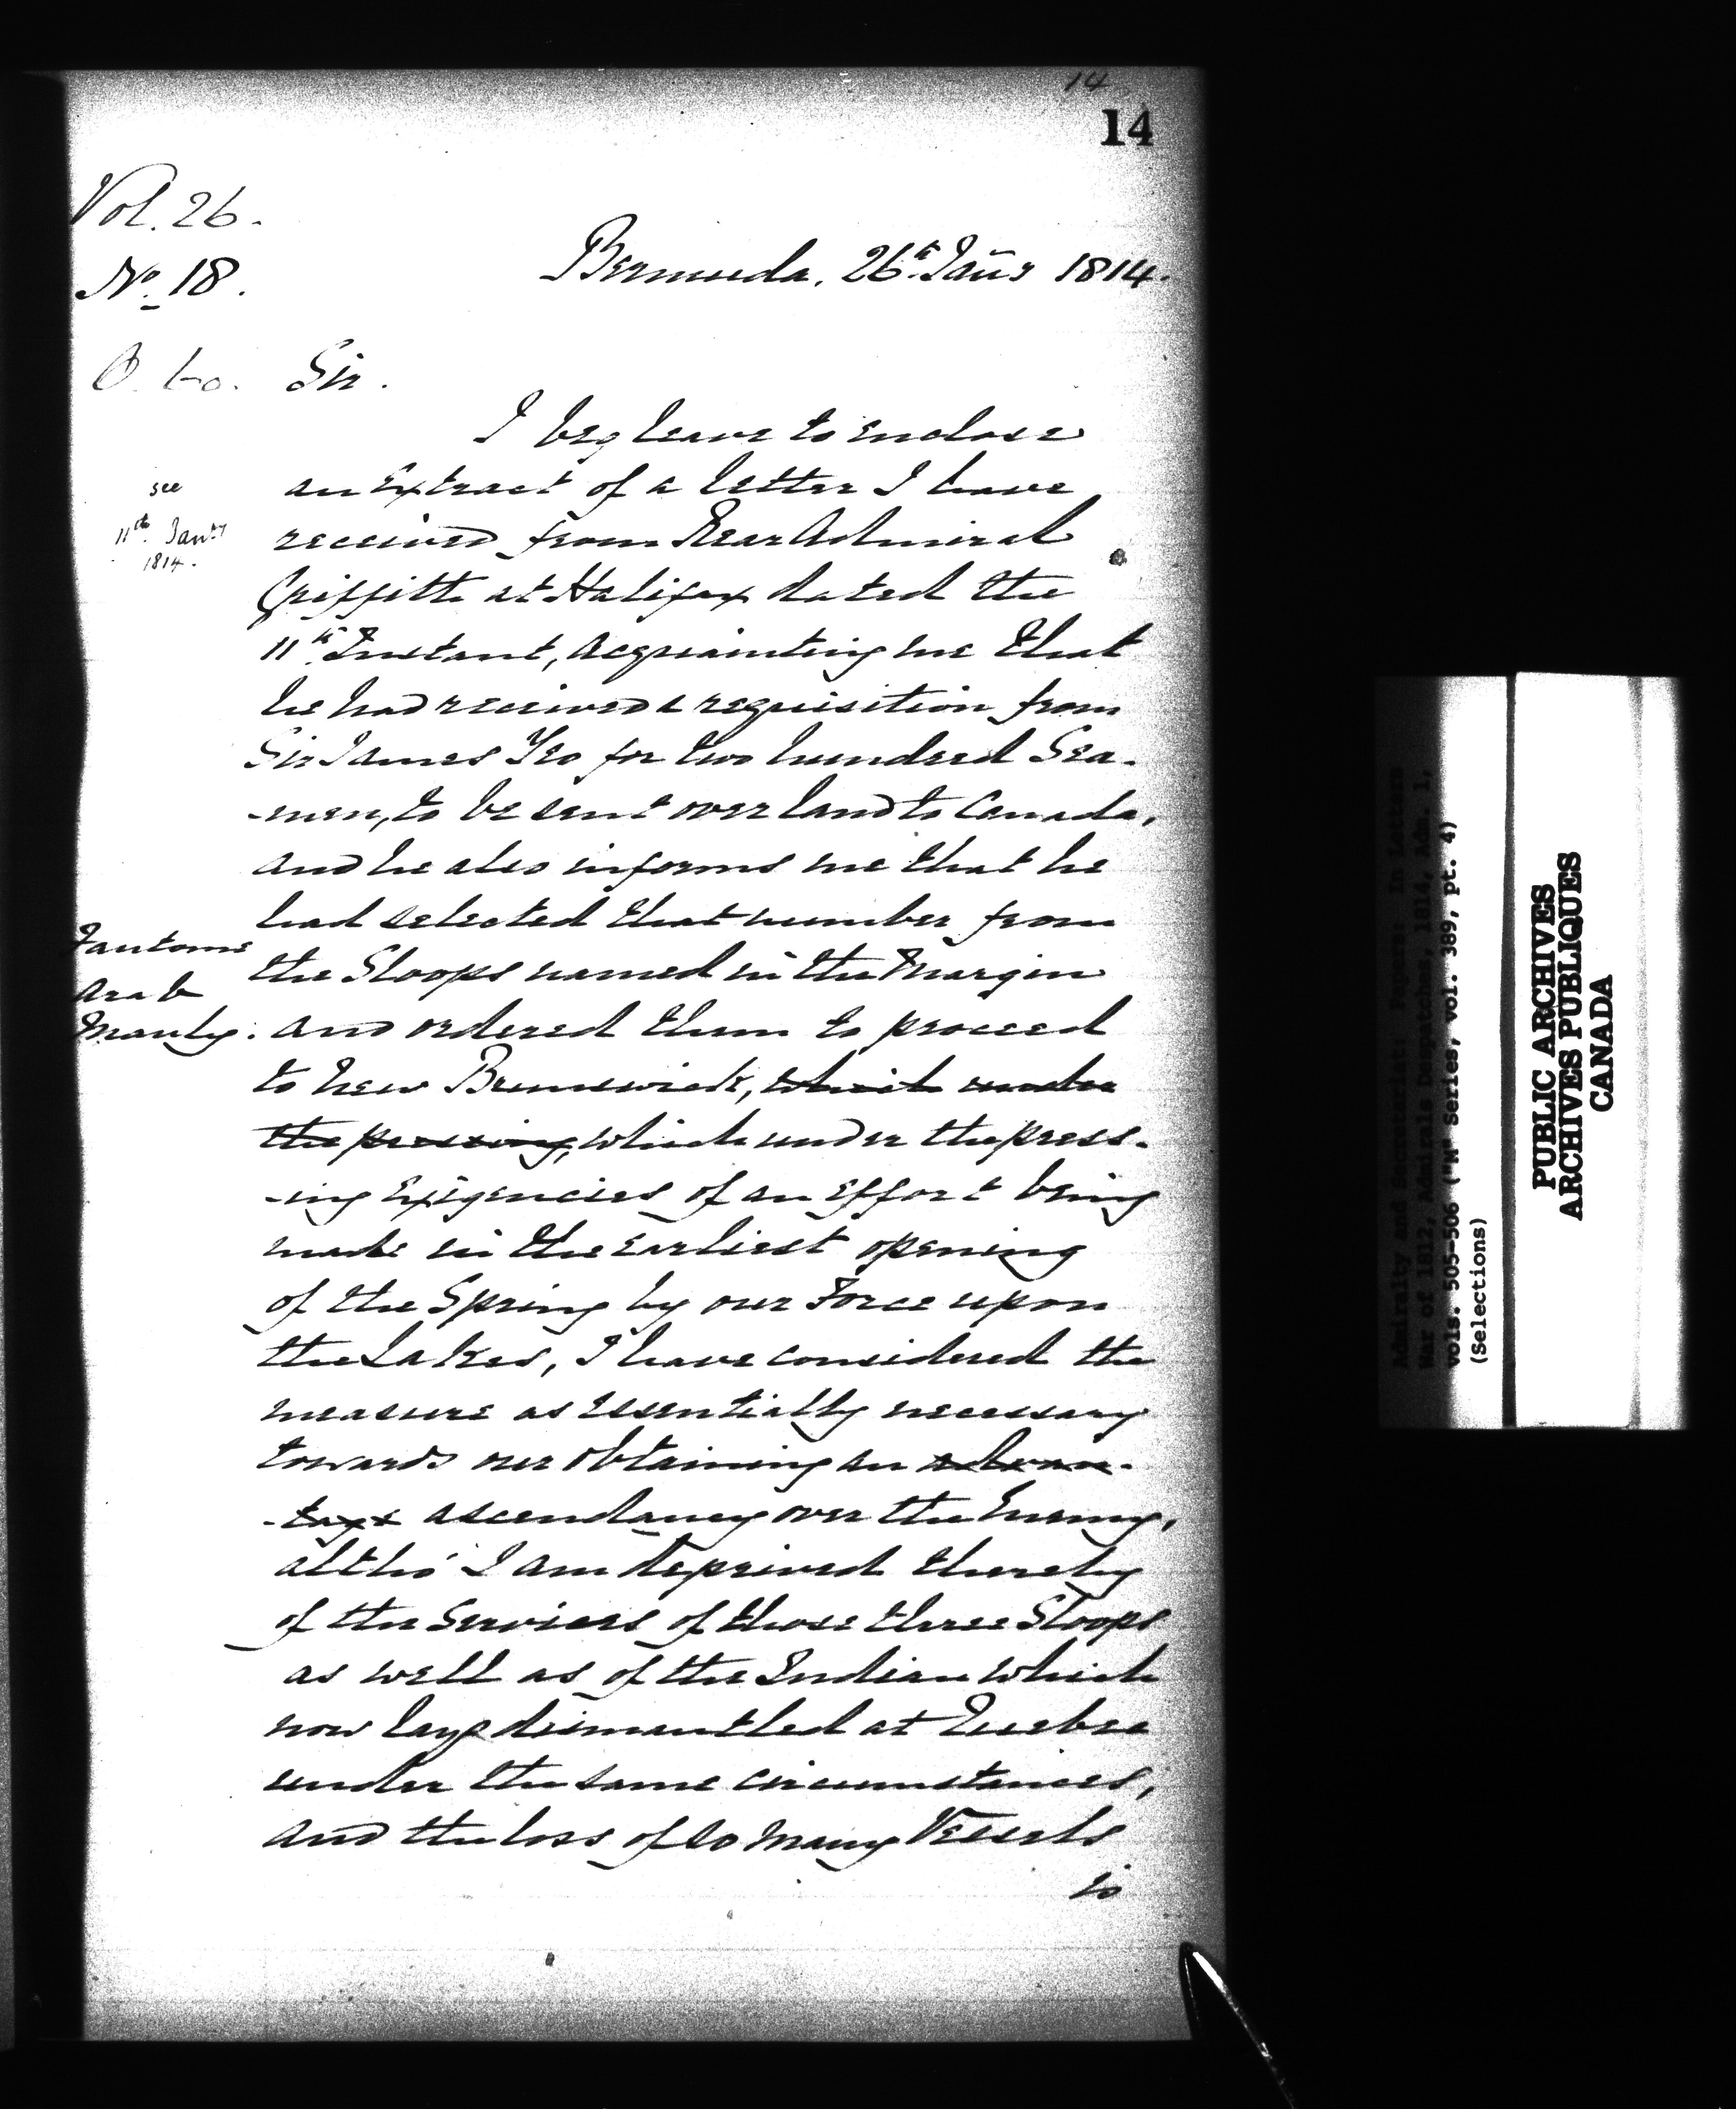 14
14
Vol. 26.
No. 18.
Bermuda. 26th Jany 1814.
Sir.
I beg leave to enclose
see
11th Jany
1814.
an Extract of a letter I have
received from Rear Admiral
Griffith at Halifax dated the
11th Instant, acquainting me that
he had received a requisition from
Sir James Yeo for two hundred Sea-
-men, to be sent over land to Canada,
and he also informs me that he
had selected that number from
Fantome
Arab
Manly:
the Sloops named in the Margin
and ordered them to proceed
to New Brunswick, which under
the pressing, which under the press-
-ing Exigencies of an Effort being
made in the earliest opening
of the Spring by our Force upon
the Lakes, I have considered the
measure as essentially necessary
towards our obtaining an advan-
-tage ascendancy over the Enemy,
altho' I am deprived thereby
of the Services of those three Sloops
as well as of the Indian which
now lays dismantled at Quebec
under the same circumstances;
and the loss of so many Vessels
is
Admiralty and Secretariat: Papers: In Letters
War of 1812, Admirals Despatches, 1814, Adm. 1,
vols. 505-506 ("M" Series, vol. 389, pt. 4)
(Selections)
PUBLIC ARCHIVES
ARCHIVES PUBLIQUES
CANADA